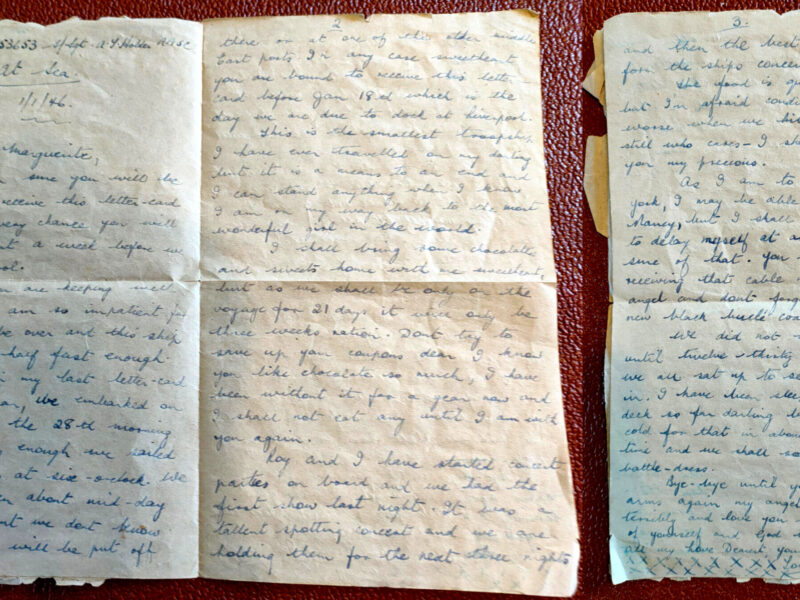 53653 S/Sgt. A G Holder RASC
At Sea.
1/1/46.
Marguerite,
sure you will be
receive this letter-card
every chance you will
a week before we
ool.
are keeping well
am so impatient for
be over and this ship
half fast enough.
my last letter-card
we embarked on
the 28th morning
enough we sailed
at six-o-clock. We
about mid-day
we dont know
will be put off
2
there or at one of the other middle
East posts. In any case sweetheart
you are bound to receive this letter
card before Jan 18th which is the
day we are due to dock at Liverpool.
This is the smallest troopship
I have ever travelled on my darling
but it is a means to an end and
I can stand anything when I know
I am on my way back to the most
wonderful girl in the world.
I shall bring some chocolate
and sweets home with me sweetheart,
but as we shall be only on the
voyage for 21 days it will only be
three weeks ration. Dont try to
save up your coupons dear I know
you like chocolate so much, I have
been without it for a year now and
I shall not eat any until I am with
you again.
Roy and I have started concert
parties on board and we had the
first show last night. It was a
talent spotting concert and we are
holding them for the next three nights
3.
and then the best
form the ships concer
The food is
but I'm afraid condi
worse when we
still who cares - I sha
you my precious.
As I am to
york, I may be able
Nancy, but I shall
to delay myself at
sure of that. You
receiving that cable
angel and dont forge
new black
We did not
until twelve-thirty
we all sat up to se
in. I have been slee
deck so far darling
cold for that in abou
time and we shall
battle-dress.
Bye-bye until yo
arms again my angel
terribly and love you
of yourself and God
all my love Dearest you
X X X X X X X X X